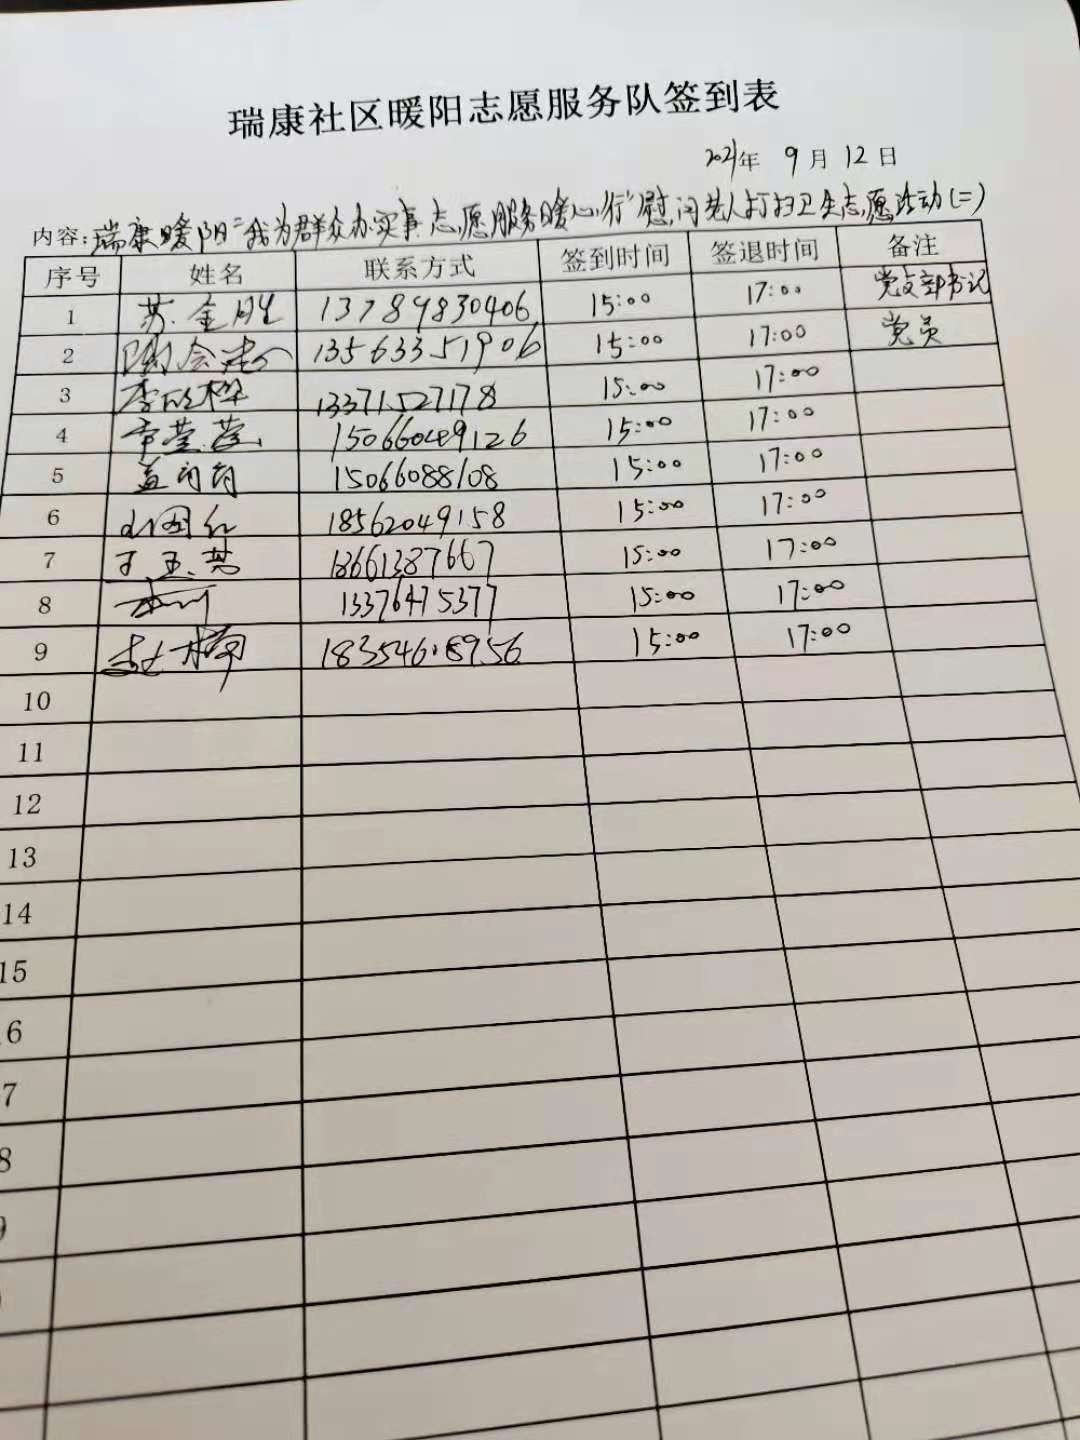 瑞康社区暖阳志愿服务队签到表
2021年 9月12日
内容:瑞康暖阳"我为群众办实事 志愿服务暖心行"慰问老人打扫卫生志愿活动(二)
序号 姓名 联系方式 签到时间 签退时间 备注
1 苏金胜 13789830406 15:00 17:00 党支部书记
2 13563351906 15:00 17:00 党员
3 李欣桦 13371527178 15:00 17:00
4 章莹莹 15066049126 15:00 17:00
5 孟肖肖 15066088108 15:00 17:00
6 18562049158 15:00 17:00
7 于玉芬 18661387667 15:00 17:00
8 13376475377 15:00 17:00
9 18354608956 15:00 17:00
10
11
12
13
14
15
6
7
8
9